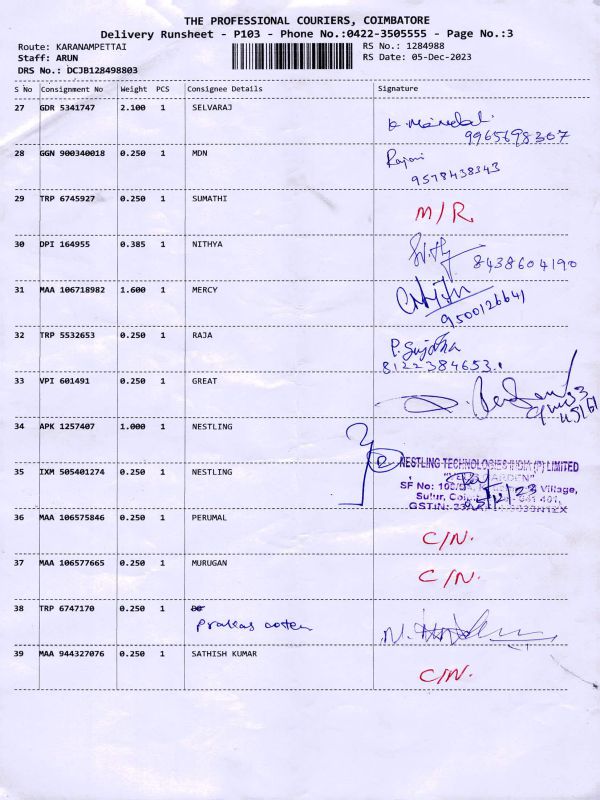 THE PROFESSIONAL COURIERS, COIMBATORE
Delivery Runsheet - P103 - Phone No.:0422-3505555 - Page No.:3
Route: KARANAMPETTAI
RS No.: 1284988
Staff: ARUN
RS Date: 05-Dec-2023
DRS No.: DCJB128498803
S No Consignment No Weight PCS Consignee Details Signature
27 GDR 5341747 2.100 1 SELVARAJ
9965698307
28 GGN 900340018 0.250 1 MDN Rajani
9578438343
29 TRP 6745927 0.250 1 SUMATHI M/R.
30 DPI 164955 0.385 1 NITHYA
8438604190
31 MAA 106718982 1.600 1 MERCY
9500126641
32 TRP 5532653 0.250 1 RAJA P. Sujatha
8122384653.
33 VPI 601491 0.250 1 GREAT
34 APK 1257407 1.000 1 NESTLING
35 IXM 505401274 0.250 1 NESTLING
NESTLING TECHNOLOGIES INDIA (P) LIMITED
SF No: Village,
Sulur, 641 401,
GSTIN:
36 MAA 106575846 0.250 1 PERUMAL C/N.
37 MAA 106577665 0.250 1 MURUGAN C/N.
38 TRP 6747170 0.250 1
prakas
39 MAA 944327076 0.250 1 SATHISH KUMAR C/N.